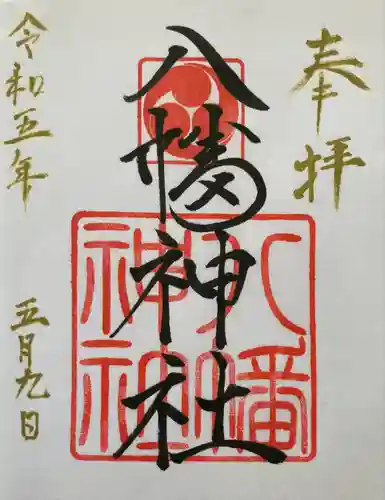 奉拝
八幡神社
八幡
神社
令和五年
五月九日